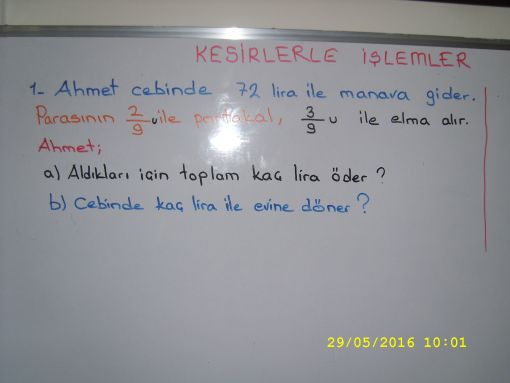 KESİRLERLE İŞLEMLER
1- Ahmet cebinde 72 lira ile manava gider.
Parasının 2/9 u ile portakal, 3/9 u ile elma alır.
Ahmet;
a) Aldıkları için toplam kaç lira öder?
b) Cebinde kaç lira ile evine döner?
29/05/2016 10:01